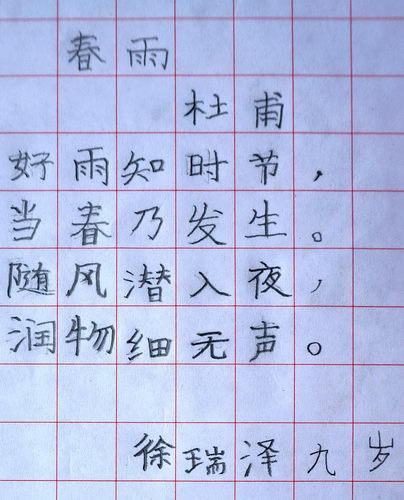 春雨
杜甫
好雨知时节，
当春乃发生。
随风潜入夜，
润物细无声。
徐瑞泽九岁